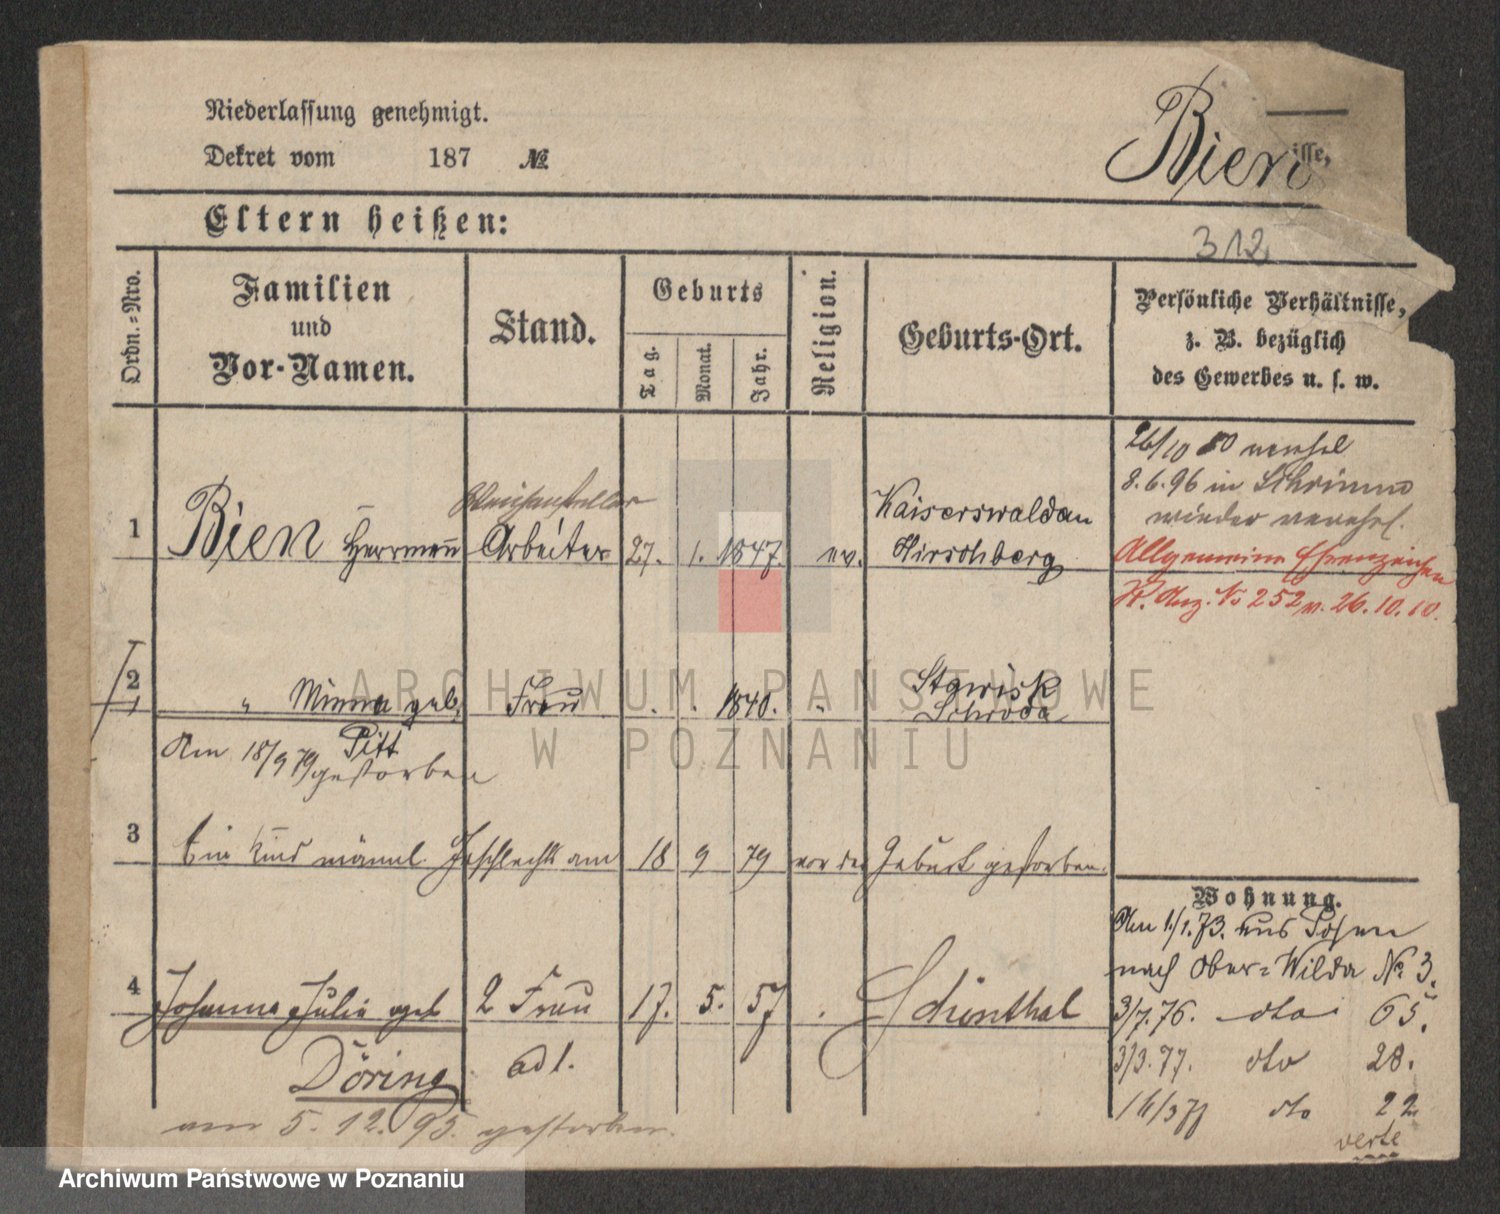 Niederlassung genehmigt.
Dekret vom 187 №
Bien
isse,
Eltern heißen:
312
Ordn.-Nro.
Familien
und
Vor-Namen.
Stand.
Geburts
Tag.
Monat.
Jahr.
Religion.
Geburts-Ort.
Persönliche Verhältnisse,
z. B. bezüglich
des Gewerbes u. s. w.
26/10 80 verehel
8.6.96 in Schrimm
wieder verehel.
Weichensteller
1 Bien Herrmann Arbeiter 27. 1. 1847. ev. Kaiserswaldau
Hirschberg
Allgemeine Ehrenzeichen
Anz. No 252 v. 26.10.10.
2 " Minna geb. Frau . . 1840. " Stawisk
Pitt Schroda
Am 18/9 79 gestorben
3 Ein Kind männl. Geschlechts am 18 9 79 vor der Geburt gestorben.
Wohnung.
Am 1/1.73. aus Posen
nach Ober-Wilda No 3.
4 Johanna Julie geb 2 Frau 17. 5. 57 . Schönthal
Döring adl.
3/7.76. dto 65.
3/3.77. dto 28.
16/3 77 dto 22
verte
am 5.12.95. gestorben.
ARCHIWUM PAŃSTWOWE
W POZNANIU
Archiwum Państwowe w Poznaniu